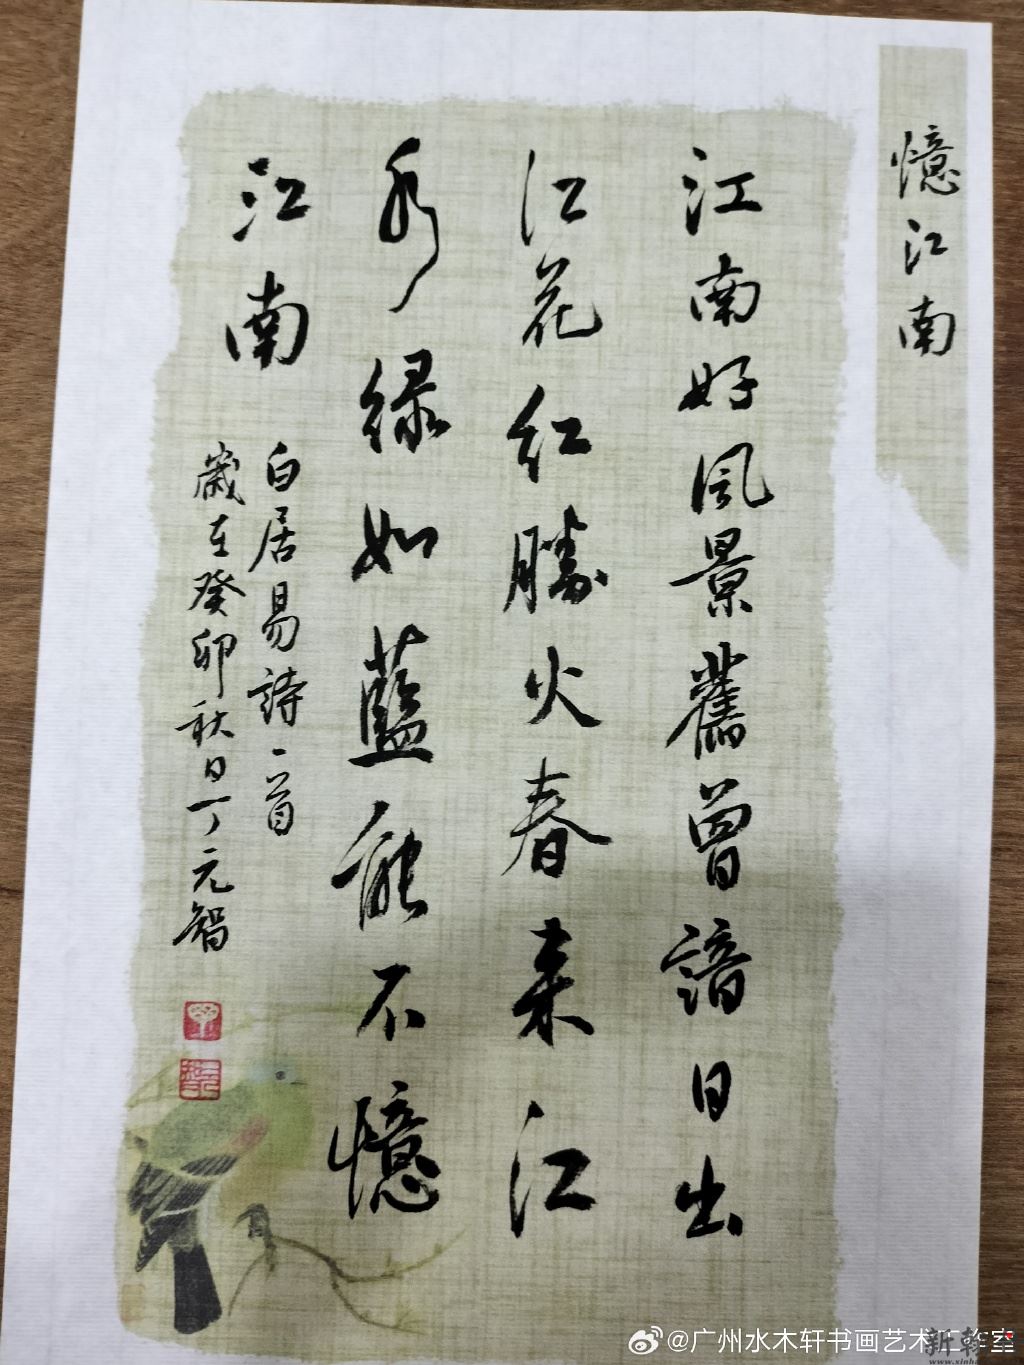 憶江南
江南好风景舊曾諳日出
江花红勝火春来江
水绿如藍能不憶
江南
白居易詩一首
歲在癸卯秋日丁元智
@广州水木轩书画艺术工作室